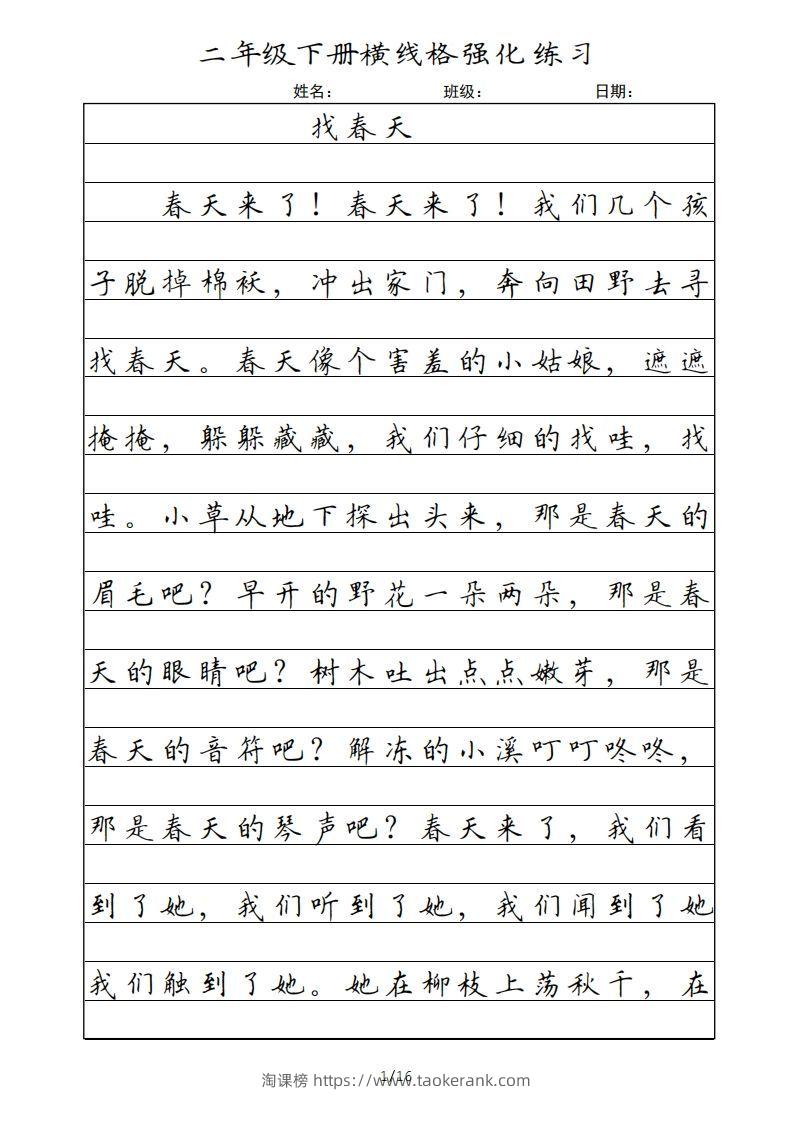 二年级下册横线格强化练习
姓名： 班级： 日期：
找春天
春天来了！春天来了！我们几个孩
子脱掉棉袄，冲出家门，奔向田野去寻
找春天。春天像个害羞的小姑娘，遮遮
掩掩，躲躲藏藏，我们仔细的找哇，找
哇。小草从地下探出头来，那是春天的
眉毛吧？早开的野花一朵两朵，那是春
天的眼睛吧？树木吐出点点嫩芽，那是
春天的音符吧？解冻的小溪叮叮咚咚，
那是春天的琴声吧？春天来了，我们看
到了她，我们听到了她，我们闻到了她
我们触到了她。她在柳枝上荡秋千，在
1/16
淘课榜 https://www.taokerank.com